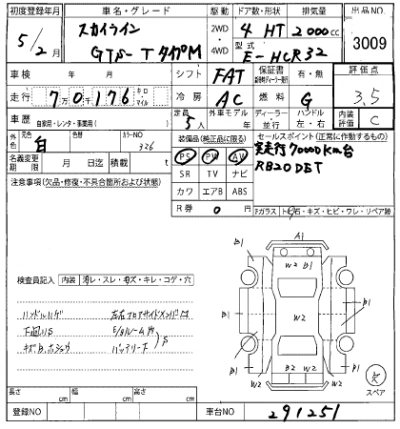 初度登録年月 車名・グレード 駆動 ドア数・形状 排気量 出品NO
5/2月 スカイライン 2WD 4 HT 2000cc 3009
GTS-TタイプM 4WD 型式 E-HCR32
車検 年 月 シフト FAT 保証書 有・無 評価点
走行 70,176 キロ・マイル 冷房 AC 燃料 G 3.5
車歴 自家用・レンタ・事業用( ) 定員 5人 外車モデル 年 ディーラー・並行 ハンドル 左・右 内装評価 C
外色 元色 白 色替 カラーNO 326 装備品(純正品に限る) セールスポイント(正常に作動するもの)
名義変更期限 月 日迄 積載 t PS PW AW 実走行70000km台
SR TV ナビ RB20DET
注意事項(欠品・修復・不具合箇所および状態) カワ エアB ABS
R券 0円 Fガラス トビ石・キズ・ヒビ・ワレ・リペア跡
A1
B1 W2 B1 B1
検査員記入 内装 汚レ・スレ・キズ・キレ・コゲ・穴
ハンドルハゲ
下廻りS E/Bルーム内 S
バッテリー
B1 W2 B1
B1 W2 W2
W2 B2 W2 W2
スペア
長さ cm 幅 cm 高さ cm
登録NO 車台NO 291251